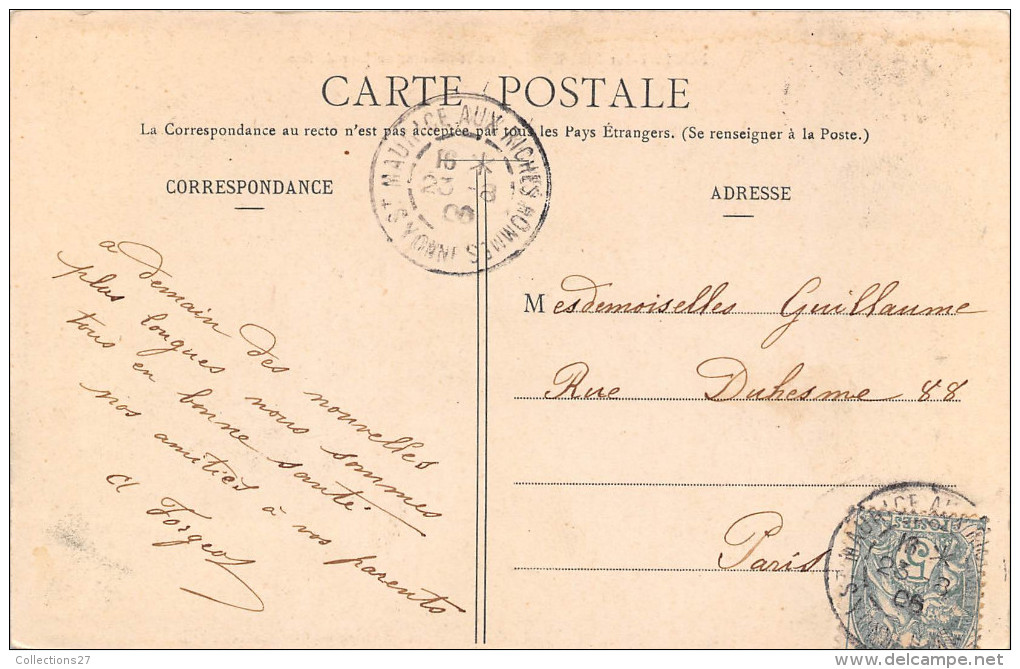 CARTE POSTALE
La Correspondance au recto n'est pas acceptée par tous les Pays Étrangers. (Se renseigner à la Poste.)
CORRESPONDANCE
ADRESSE
ST MAURICE AUX RICHES HOMMES (YONNE)
16 *
23 -8
06
a demain des nouvelles
plus longues nous sommes
tous en bonne santé.
nos amitiés à vos parents
A Forgeot
Mesdemoiselles Guillaume
Rue Duhesme 88
Paris
ST MAURICE AUX
16 *
23 8
06
POSTES
5
Collections27
www.delcampe.net